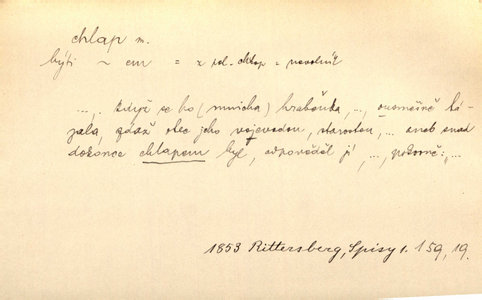 chlap m.
býti ~ em = z pol. chłop = nevolník
..., když se ho (mnicha) hraběnka, ..., tá-
zala, zdaž otec jeho vojevodou, starostou, ... aneb snad
dokonce chlapem byl, odpověděl jí, ..., pokorně: ...
1853 Rittersberg, Spisy 1. 159, 19.